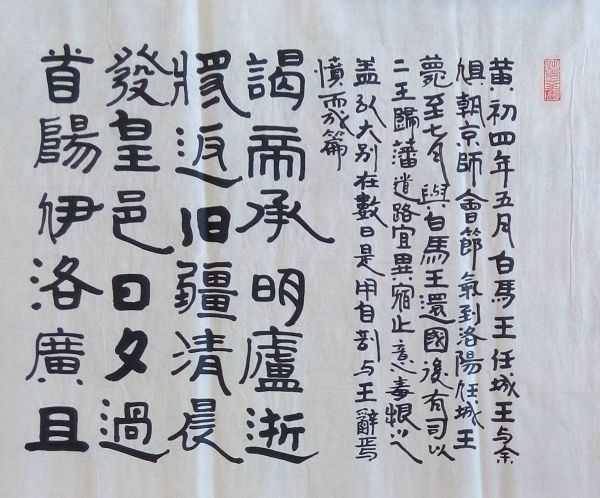 黄初四年五月白馬王任城王与余
俱朝京師會節氣到洛陽任城王
薨至七月與白馬王還國後有司以
二王歸藩道路宜異宿止意毒恨之
盖以大别在數日是用自剖与王辭焉
憤而成篇
謁帝承明廬逝
將返旧疆清晨
發皇邑日夕過
首陽伊洛廣且